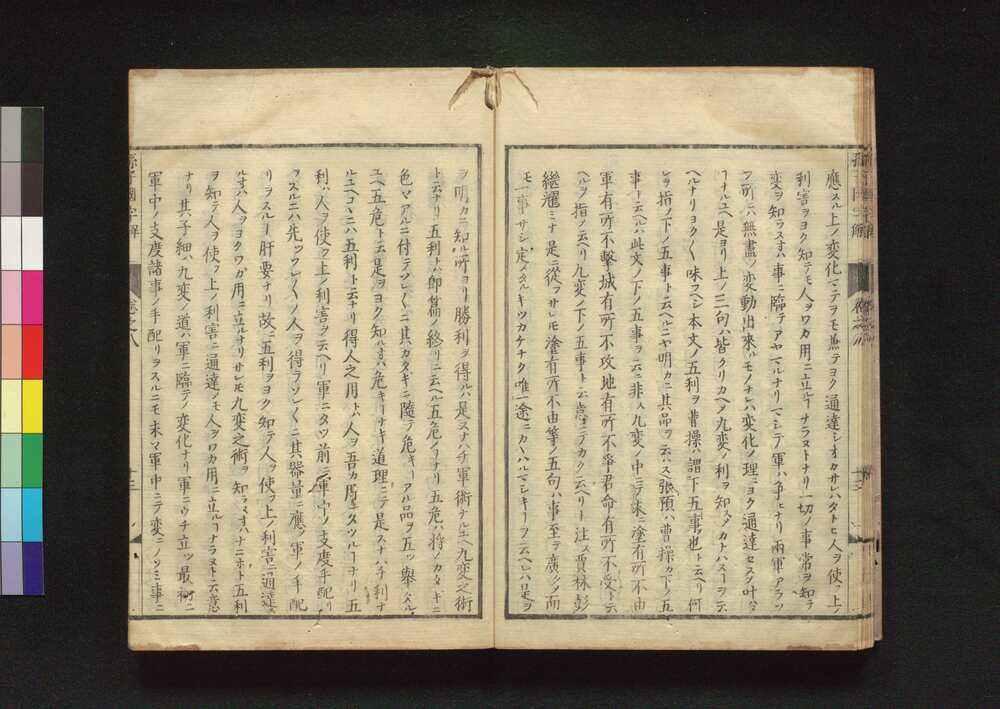 應スル上ノ変化マテヲモ兼テヨク通達シオカサレハタトヒ人ヲ使フ上ノ
利害ヲヨク知テモ人ヲワカ用ニ立ルヿナラヌトナリ一切ノ事常ヲ知ラ
変ヲ知ラスレハ事ニ臨テアヤマルナリマシテ軍ハ争ヒナリ両軍アラソ
フ所ニハ無盡ノ変動出來ルモノナレハ変化ノ理ニヨク通達セスメ叶ハ
ヿナルユヘ是ヨリ上ノ三句ハ皆クリカヘメ九変ノ利ヲ知スメカナハスヿヲ云
ヘルナリヨクヨク味フヘシ本文ノ五利ヲ曹操ハ謂下五事也ト云ヘリ何
レヲ指ノ下ノ五事ト云ヘルニヤ明カニ其品ヲ云ハス張預ハ曹操カ下ノ五
事ト云ヘルハ此文ノ下ノ五事ヲ云ニ非ス九変ノ中ニテ末ニ塗有所不由
軍有所不撃城有所不攻地有所不爭君命有所不受ト云
ヘルヲ指ノ云ヘリ九変ノ下ノ五事ト云意ニテカク云ヘリト注ス賈林彭
繼耀ミナ是ニ從フサレモ塗有所不由等ノ五句ハ事至テ廣クメ而
モ一事サシ定メタルキツカケナク唯一途ニカヽハルマシキヿヲ云ヘレハ是モヲ
ヲ明カニ知ル所ヨリ勝利ヲ得ルハ是スナハチ軍術ナルユヘ九変之術
ト云ナリ五利トハ即篇ノ終リニ云ヘル五危ノヿナリ五危ハ将ノカタキニ
色々アルニ付テソレソレニ其カタキニ隨テ危キヿアル品ヲ五ツ舉タル
ユヘ五危ト云是ヲヨク知レハ危キヿナキ道理ニテ是スナハチ利ナ
ルユヘコヽニハ五利ト云ナリ得人之用トハ人ヲ吾カ用ニタツルヿナリ五
利ハ人ヲ使フ上ノ利害ヲ云ヘリ軍ニタツ前ニ軍中ノ支度手配リ
ヲスルニハ先ツソレソレノ人ヲ得テソレソレニ其器量ニ應メ軍ノ手配
リヲスルヿ肝要ナリ故ニ五利ヲヨク知テ人ヲ使フ上ノ利害ニ通達ス
ルレハ人ヲヨクワガ用ニ立ルナリサレモ九変之術ヲ知ラスレハナニホト五利
ヲ知テ人ヲ使フ上ノ利害ニ通達メモ人ヲワカ用ニ立ルヿナラヌト云意
ナリ其子細ハ九変ノ道ハ軍ニ臨テノ変化ナリ軍ニウチ立ツ最初ニ
軍中ノ支度諸事ノ手配リヲスルニモ末マ軍中ニテ変ニノソミ事ニ
孫子國字解
卷之八
十三